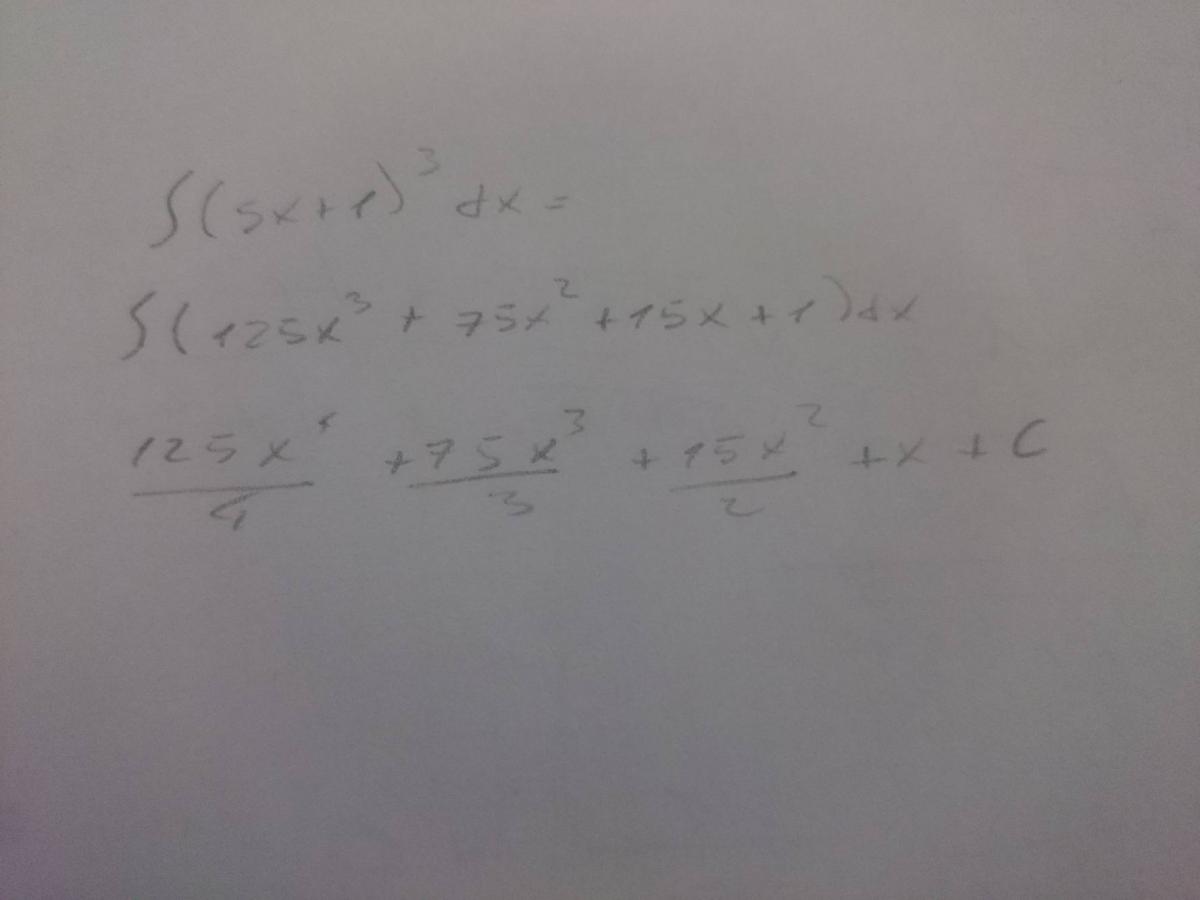 ∫(5x+1)³ dx =
∫(125x³ + 75x² + 15x + 1)dx
125x⁴/4 + 75x³/3 + 15x²/2 + x + C